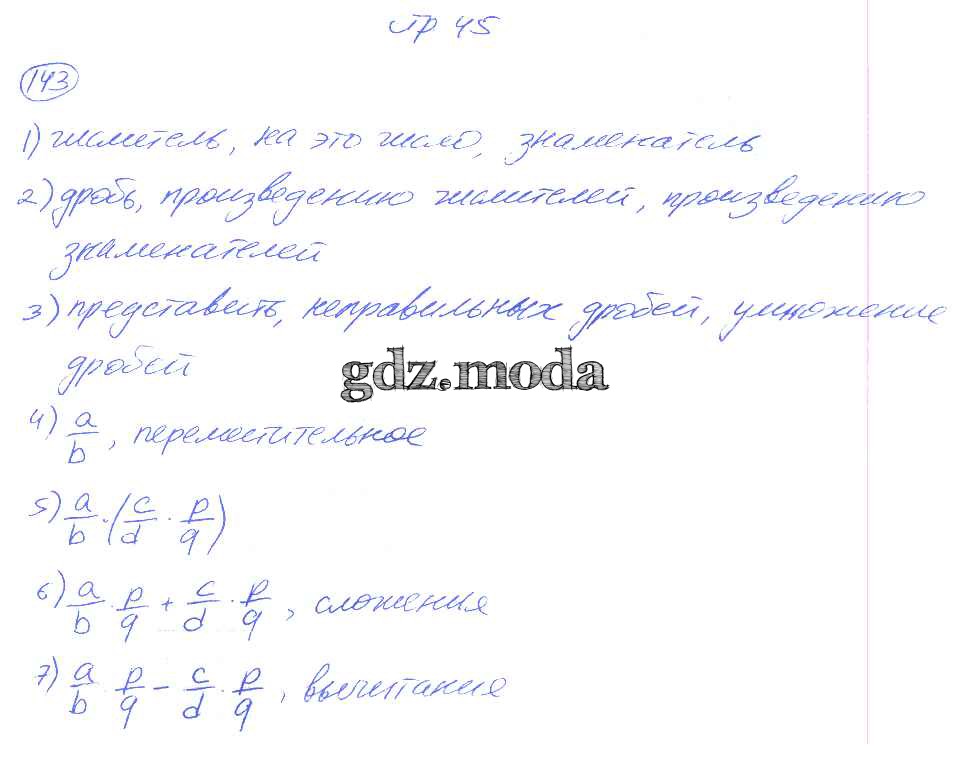 стр 45
143
1) числитель, на это число, знаменатель
2) дробь, произведению числителей, произведению
знаменателей
3) представить, неправильных дробей, умножение
дробей
gdz.moda
4) a/b, переместительное
5) a/b · (c/d · p/q)
6) a/b · p/q + c/d · p/q, сложения
7) a/b · p/q − c/d · p/q, вычитания